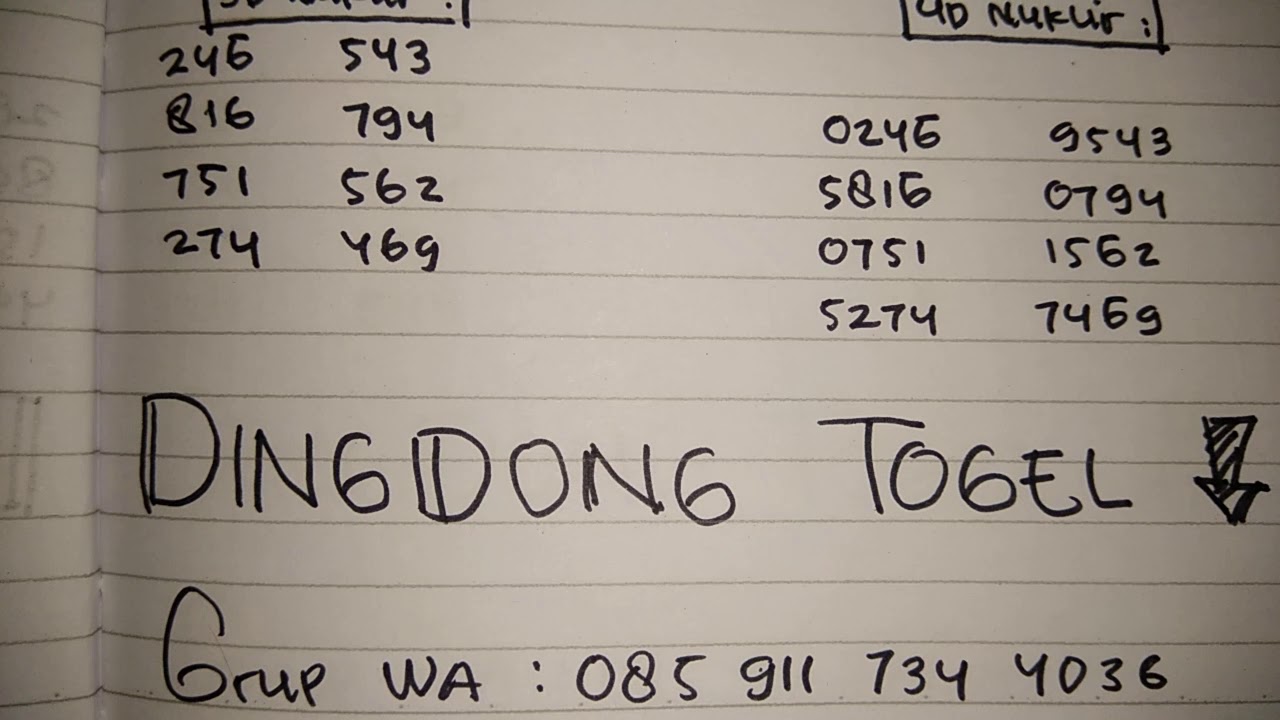 3D Nuklir : 4D Nuklir :
246 543
816 794 0246 9543
751 562 5816 0794
274 469 0751 1562
5274 7469
DINGDONG TOGEL
Grup WA : 085 911 734 4036